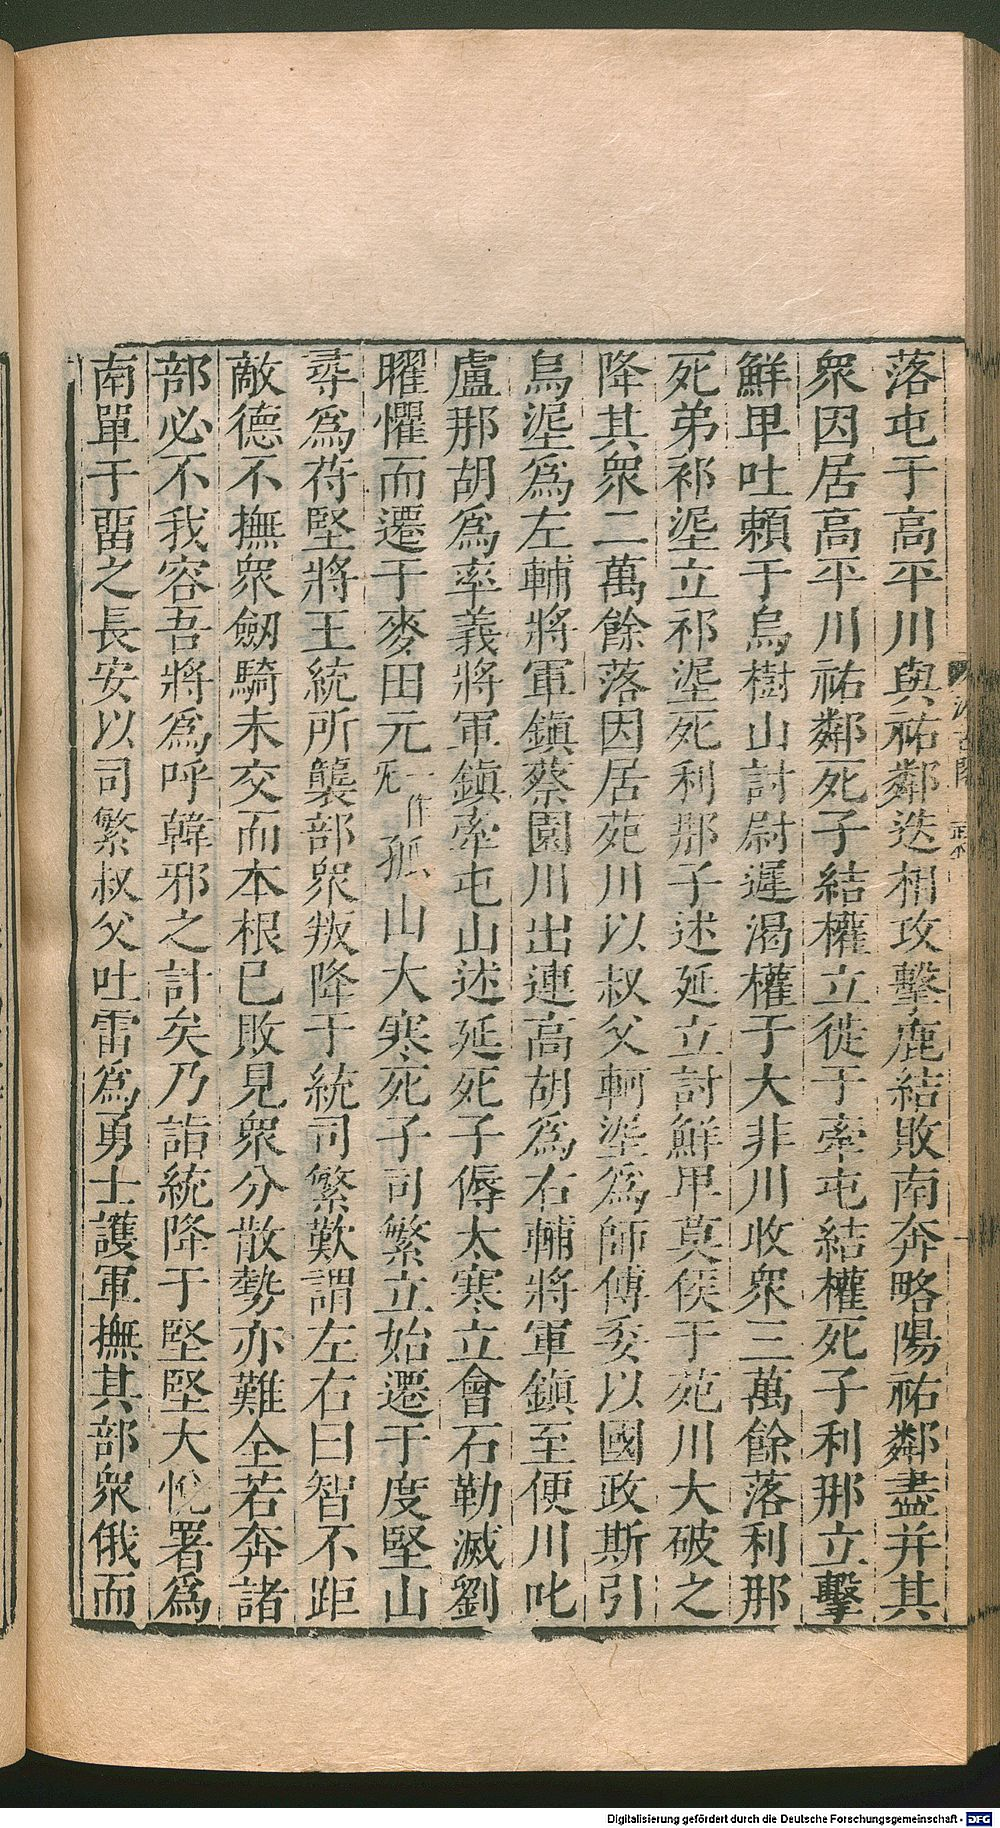 落屯于高平川與祐鄰迭相攻擊鹿結敗南奔略陽祐鄰盡并其
衆因居高平川祐鄰死子結權立徙于牽屯結權死子利那立擊
鮮卑吐賴于烏樹山討尉遲渴權于大非川收衆三萬餘落利那
死弟祁埿立祁埿死利那子述延立討鮮卑莫侯于苑川大破之
降其衆二萬餘落因居苑川以叔父軻埿爲師傅委以國政斯引
烏埿爲左輔將軍鎮蔡園川出連高胡爲右輔將軍鎮至便川叱
盧那胡爲率義將軍鎮牽屯山述延死子傉大寒立會石勒滅劉
曜懼而遷于麥田元一作孤山大寒死子司繁立始遷于度堅山
尋爲苻堅將王統所襲部衆叛降于統司繁歎謂左右曰智不距
敵德不撫衆劒騎未交而本根已敗見衆分散勢亦難全若奔諸
部必不我容吾將爲呼韓邪之計矣乃詣統降于堅堅大悅署爲
南單于畱之長安以司繁叔父吐雷爲勇士護軍撫其部衆俄而
Digitalisierung gefördert durch die Deutsche Forschungsgemeinschaft - DFG